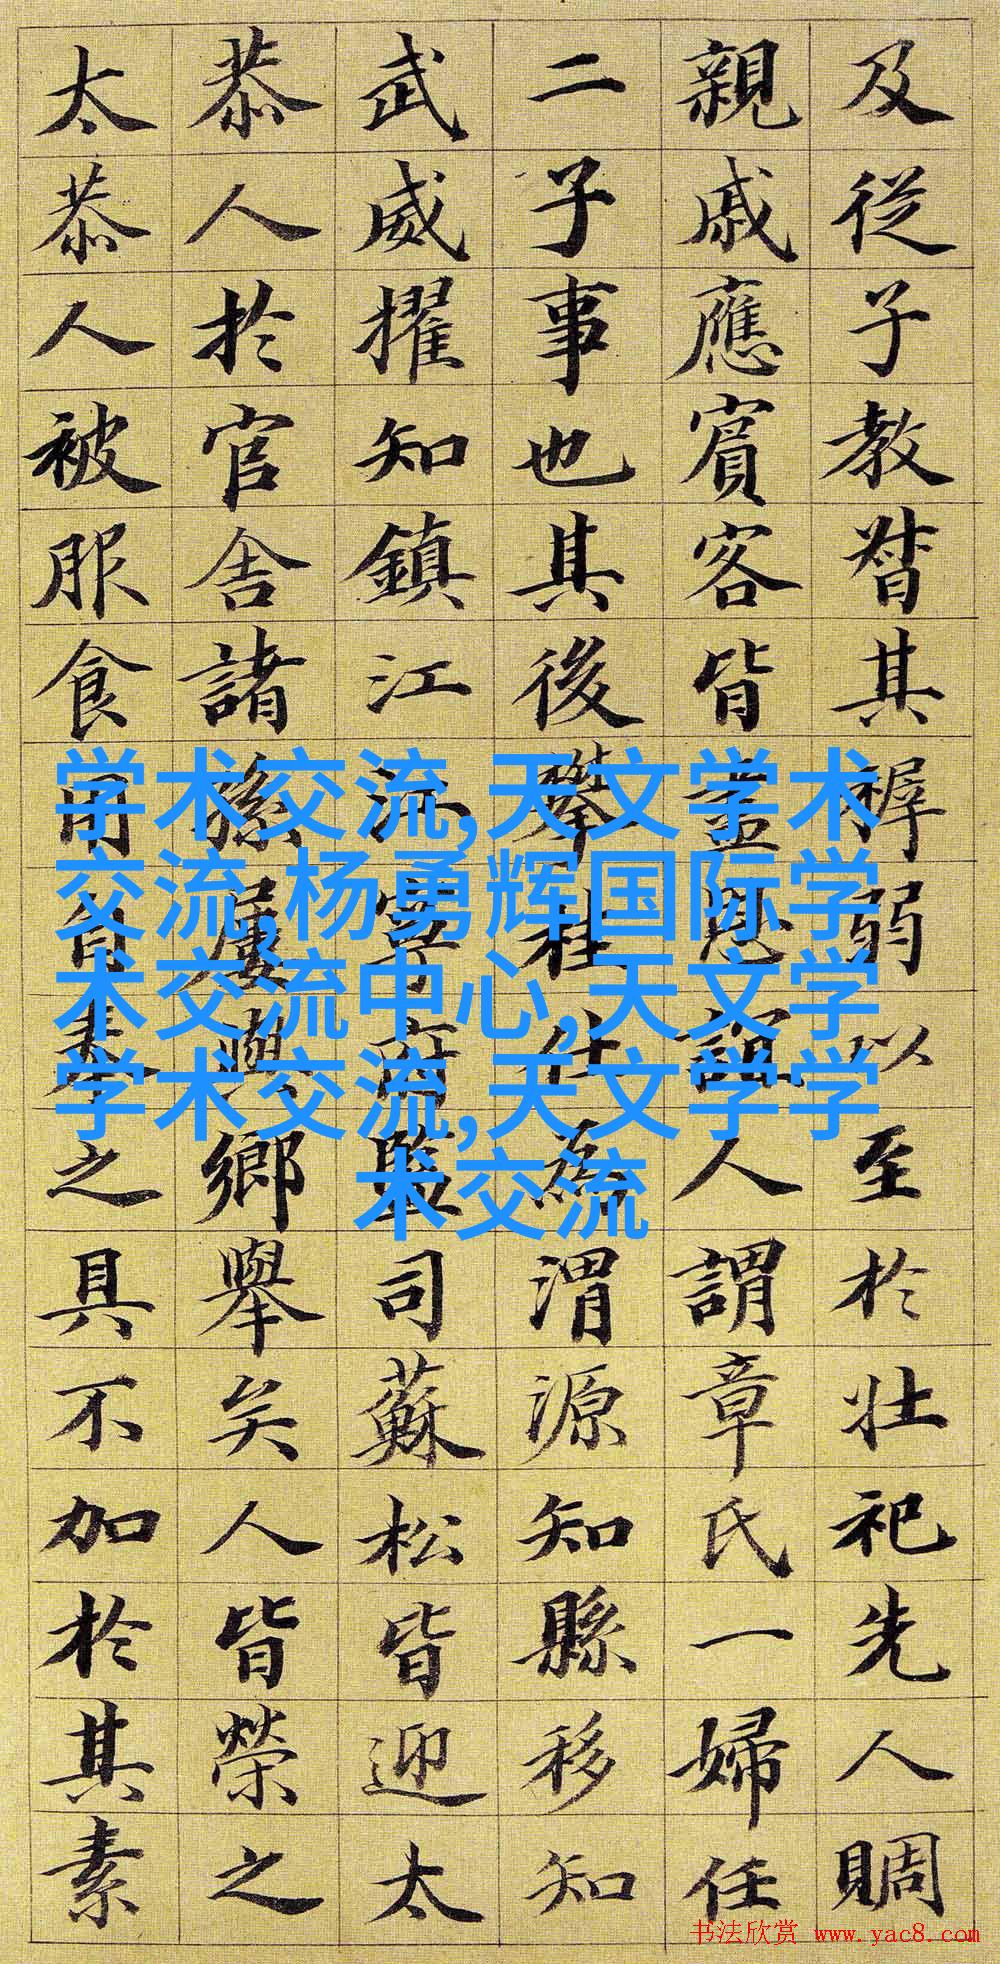 及從子教督其稺弱以至於壯祀先人賙
親戚應賓客皆盡恩誼人謂章氏一婦任
二子事也其後攀桂仕為渭源知縣移知
武威擢知鎮江江寧府監司蘇松皆迎太
恭人於官舍諸孫屢與鄉舉矣人皆榮之
太恭人被服食用自奉之具不加於其素
学术交流,天文学术
交流,杨勇辉国际学
术交流中心,天文学
学术交流,天文学学
术交流
书法欣赏 www.yac8.com